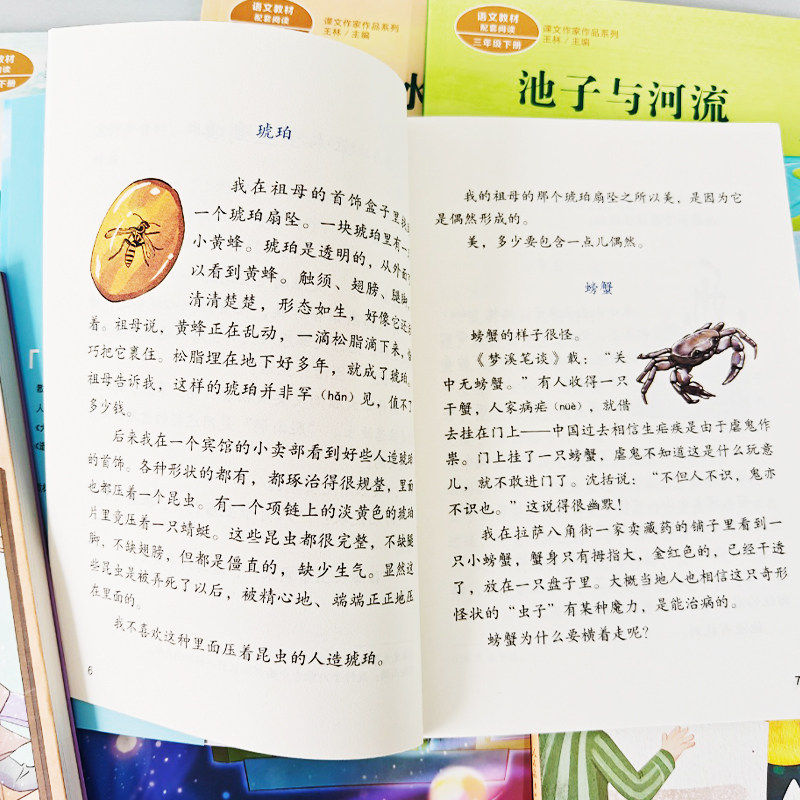 语文教材
配套阅读
课文作家作品系列
王林/主编
语文教材
配套阅读
三年级下册
课文作家作品系列
王林/主编
池子与河流
水
教材
阅读
下册
琥珀
我在祖母的首饰盒子里找
一个琥珀扇坠。一块琥珀里有一
小黄蜂。琥珀是透明的，从外面
以看到黄蜂。触须、翅膀、腿脚
清清楚楚，形态如生，好像它还
着。祖母说，黄蜂正在乱动，一滴松脂滴下来，恰
巧把它裹住。松脂埋在地下好多年，就成了琥珀。
祖母告诉我，这样的琥珀并非罕（hǎn）见，值不了
多少钱。
后来我在一个宾馆的小卖部看到好些人造琥珀
的首饰。各种形状的都有，都琢治得很规整，里面
也都压着一个昆虫。有一个项链上的淡黄色的琥珀
片里竟压着一只蜻蜓。这些昆虫都很完整，不缺腿
脚，不缺翅膀，但都是僵直的，缺少生气。显然这
些昆虫是被弄死了以后，被精心地、端端正正地压
在里面的。
我不喜欢这种里面压着昆虫的人造琥珀。
6
我的祖母的那个琥珀扇坠之所以美，是因为它
是偶然形成的。
美，多少要包含一点儿偶然。
螃蟹
螃蟹的样子很怪。
《梦溪笔谈》载：“关
中无螃蟹。”有人收得一只
干蟹，人家病疟（nüè），就借
去挂在门上——中国过去相信生疟疾是由于虐鬼作
祟。门上挂了一只螃蟹，虐鬼不知道这是什么玩意
儿，就不敢进门了。沈括说：“不但人不识，鬼亦
不识也。”这说得很幽默！
我在拉萨八角街一家卖藏药的铺子里看到一
只小螃蟹，蟹身只有拇指大，金红色的，已经干透
了，放在一只盘子里。大概当地人也相信这只奇形
怪状的“虫子”有某种魔力，是能治病的。
螃蟹为什么要横着走呢？
7